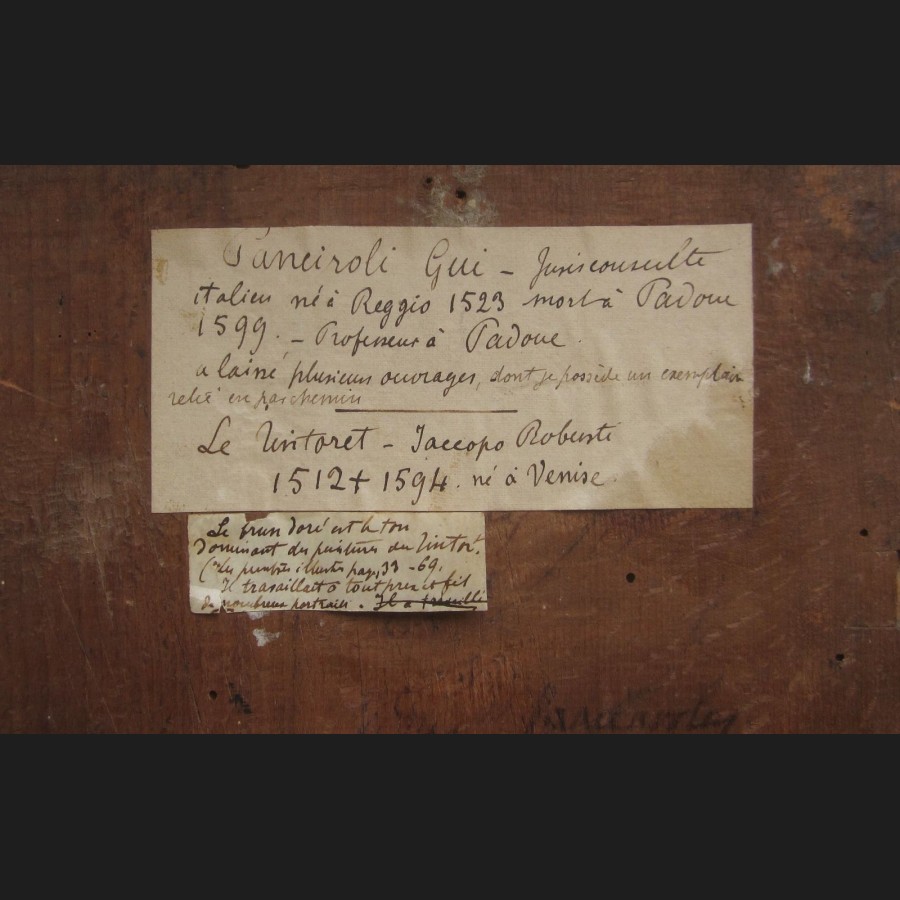 Panciroli Gui - Jurisconsulte
italien né à Reggio 1523 mort à Padoue
1599. - Professeur à Padoue.
a laissé plusieurs ouvrages, dont je possède un exemplaire
relié en parchemin
Le Tintoret - Jaccopo Robusti
1512 + 1594. né à Venise.
Le brun doré est le ton
dominant des peintures du Tintort.
(les peintres illustres page, 33 - 69.
Il travaillait à tout prix et fit
de nombreux portraits. Il a